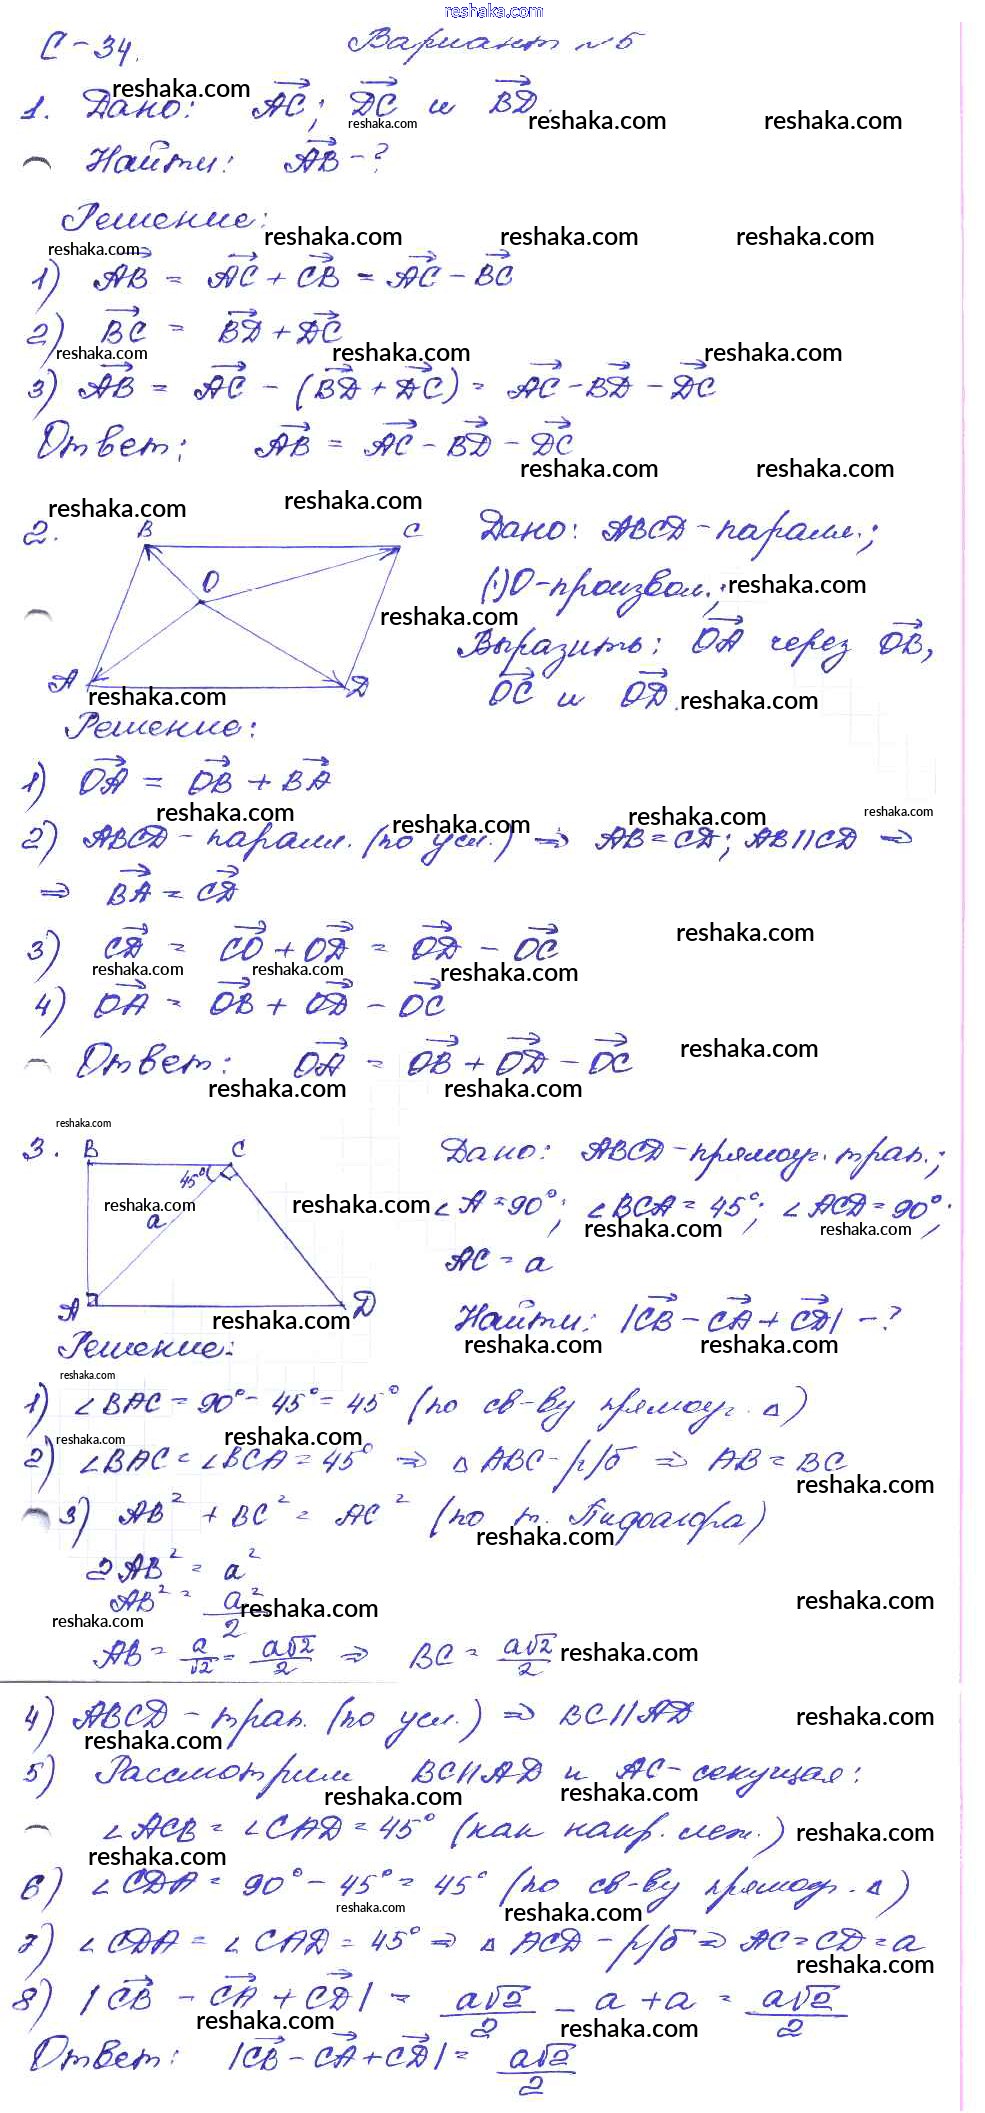 reshaka.com
С-34. Вариант №5
1. Дано: AC; DC и BD.
Найти: AB - ?
Решение:
1) AB = AC + CB = AC - BC
2) BC = BD + DC
3) AB = AC - (BD + DC) = AC - BD - DC
Ответ: AB = AC - BD - DC
2. B C O A D
Дано: ABCD - паралл.;
(·)O - произвол.;
Выразить: OA через OB,
OC и OD.
Решение:
1) OA = OB + BA
2) ABCD - паралл. (по усл.) ⇒ AB = CD; AB || CD ⇒
⇒ BA = CD
3) CD = CO + OD = OD - OC
4) OA = OB + OD - OC
Ответ: OA = OB + OD - OC
3. B C 45° a A D
Дано: ABCD - прямоуг. трап.;
∠A = 90°; ∠BCA = 45°; ∠ACD = 90°;
AC = a
Найти: |CB - CA + CD| - ?
Решение:
1) ∠BAC = 90° - 45° = 45° (по св-ву прямоуг. △)
2) ∠BAC = ∠BCA = 45° ⇒ △ABC - р/б ⇒ AB = BC
3) AB² + BC² = AC² (по т. Пифагора)
2AB² = a²
AB² = a²/2
AB = a/√2 = a√2/2 ⇒ BC = a√2/2
4) ABCD - трап. (по усл.) ⇒ BC || AD
5) Рассмотрим BC || AD и AC - секущая:
∠ACB = ∠CAD = 45° (как накр. леж.)
6) ∠CDA = 90° - 45° = 45° (по св-ву прямоуг. △)
7) ∠CDA = ∠CAD = 45° ⇒ △ACD - р/б ⇒ AC = CD = a
8) |CB - CA + CD| = a√2/2 - a + a = a√2/2
Ответ: |CB - CA + CD| = a√2/2